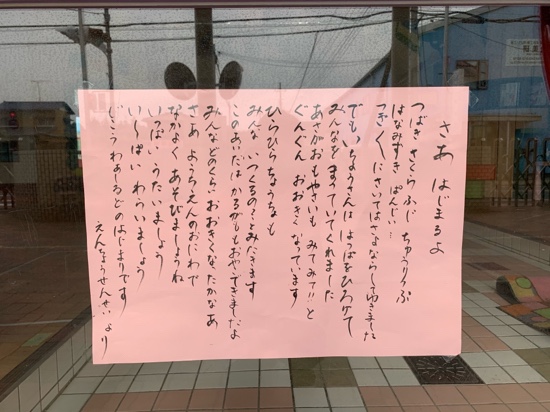 さあ はじまるよ
つばき さくら ふじ ちゅうりっぷ
はなみずき ぱんじぃ…
つぎつぎ さいてはさよならしてゆきました
でも いちょうさんは はっぱをひろげて
みんなを まっていてくれました
あさがおもやさいも みてみて!!と
ぐんぐん おおきくなっています
ひらひら ちょうちょも
みんな いつくるの?とみにきます
このあいだは かるがもも おやこできましたよ
みんな どのくらい おおきくなったかなあ
さあ ようちえんの おにわで
なかよく あそびましょうね
いっぱい うたいましょう
いーっぱい わらいましょう
えんちょうせんせい より